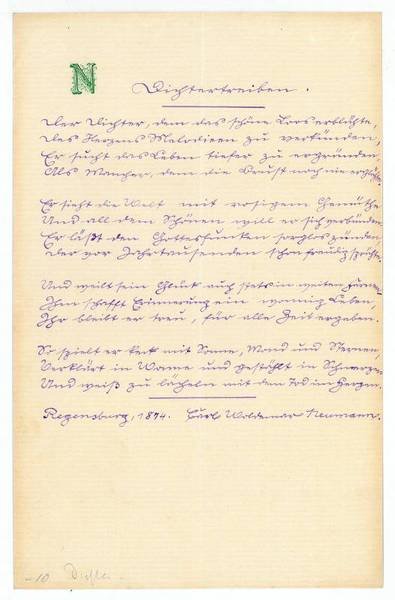 N
Dichtertreiben.
Der Dichter, dem das schöne Loos erblühte,
Des Herzens Melodieen zu verkünden,
Er sucht das Leben tiefer zu ergründen,
Als Mancher, dem die Brust noch nie erglühte.
Er sieht die Welt mit rosigem Gemüthe
Und all dem Schönen will er sich verbünden
Er läßt den Götterfunken sorglos zünden,
Der vor Jahrtausenden schon freudig sprühte.
Und weilt sein Glück auch stets in weiten Fernen
Ihm schafft Erinnerung ein wonnig Leben,
Ihr bleibt er treu, für alle Zeit ergeben.
So spielt er keck mit Sonne, Mond und Sternen,
Verklärt in Wonne und gestählt in Schmerzen
Und weiß zu lächeln mit dem Tod im Herzen.
Regensburg, 1874. Carl Woldemar Neumann.
-10